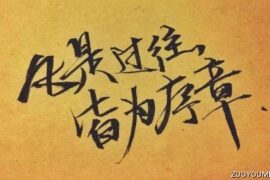 凡是过往,
皆为序章.
ZUOYOUMI